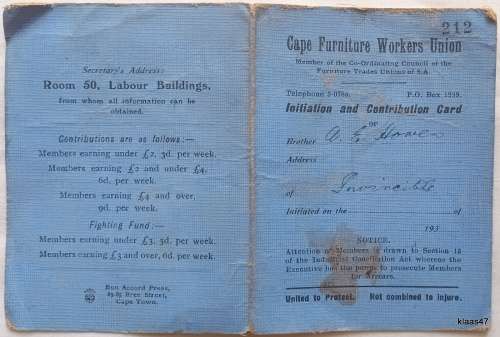 Secretary's Address:
Room 50, Labour Buildings,
from whom all information can be
obtained.
Contributions are as follows:—
Members earning under £2, 3d. per week.
Members earning £2 and under £4,
6d. per week.
Members earning £4 and over,
9d. per week.
Fighting Fund:—
Members earning under £3, 3d. per week.
Members earning £3 and over, 6d. per week.
Bon Accord Press,
Bree Street,
Cape Town.
212
Cape Furniture Workers Union
Member of the Co-Ordinating Council of the
Furniture Trades Unions of S.A.
Telephone P.O. Box
Initiation and Contribution Card
OF
Brother A. E.
Address
of Invincible
Initiated on the of
193
NOTICE.
Attention of Members is drawn to Section 18
of the Industrial Conciliation Act whereas the
Executive has the power to prosecute Members
for Arrears.
United to Protect. Not combined to Injure.
klaas47